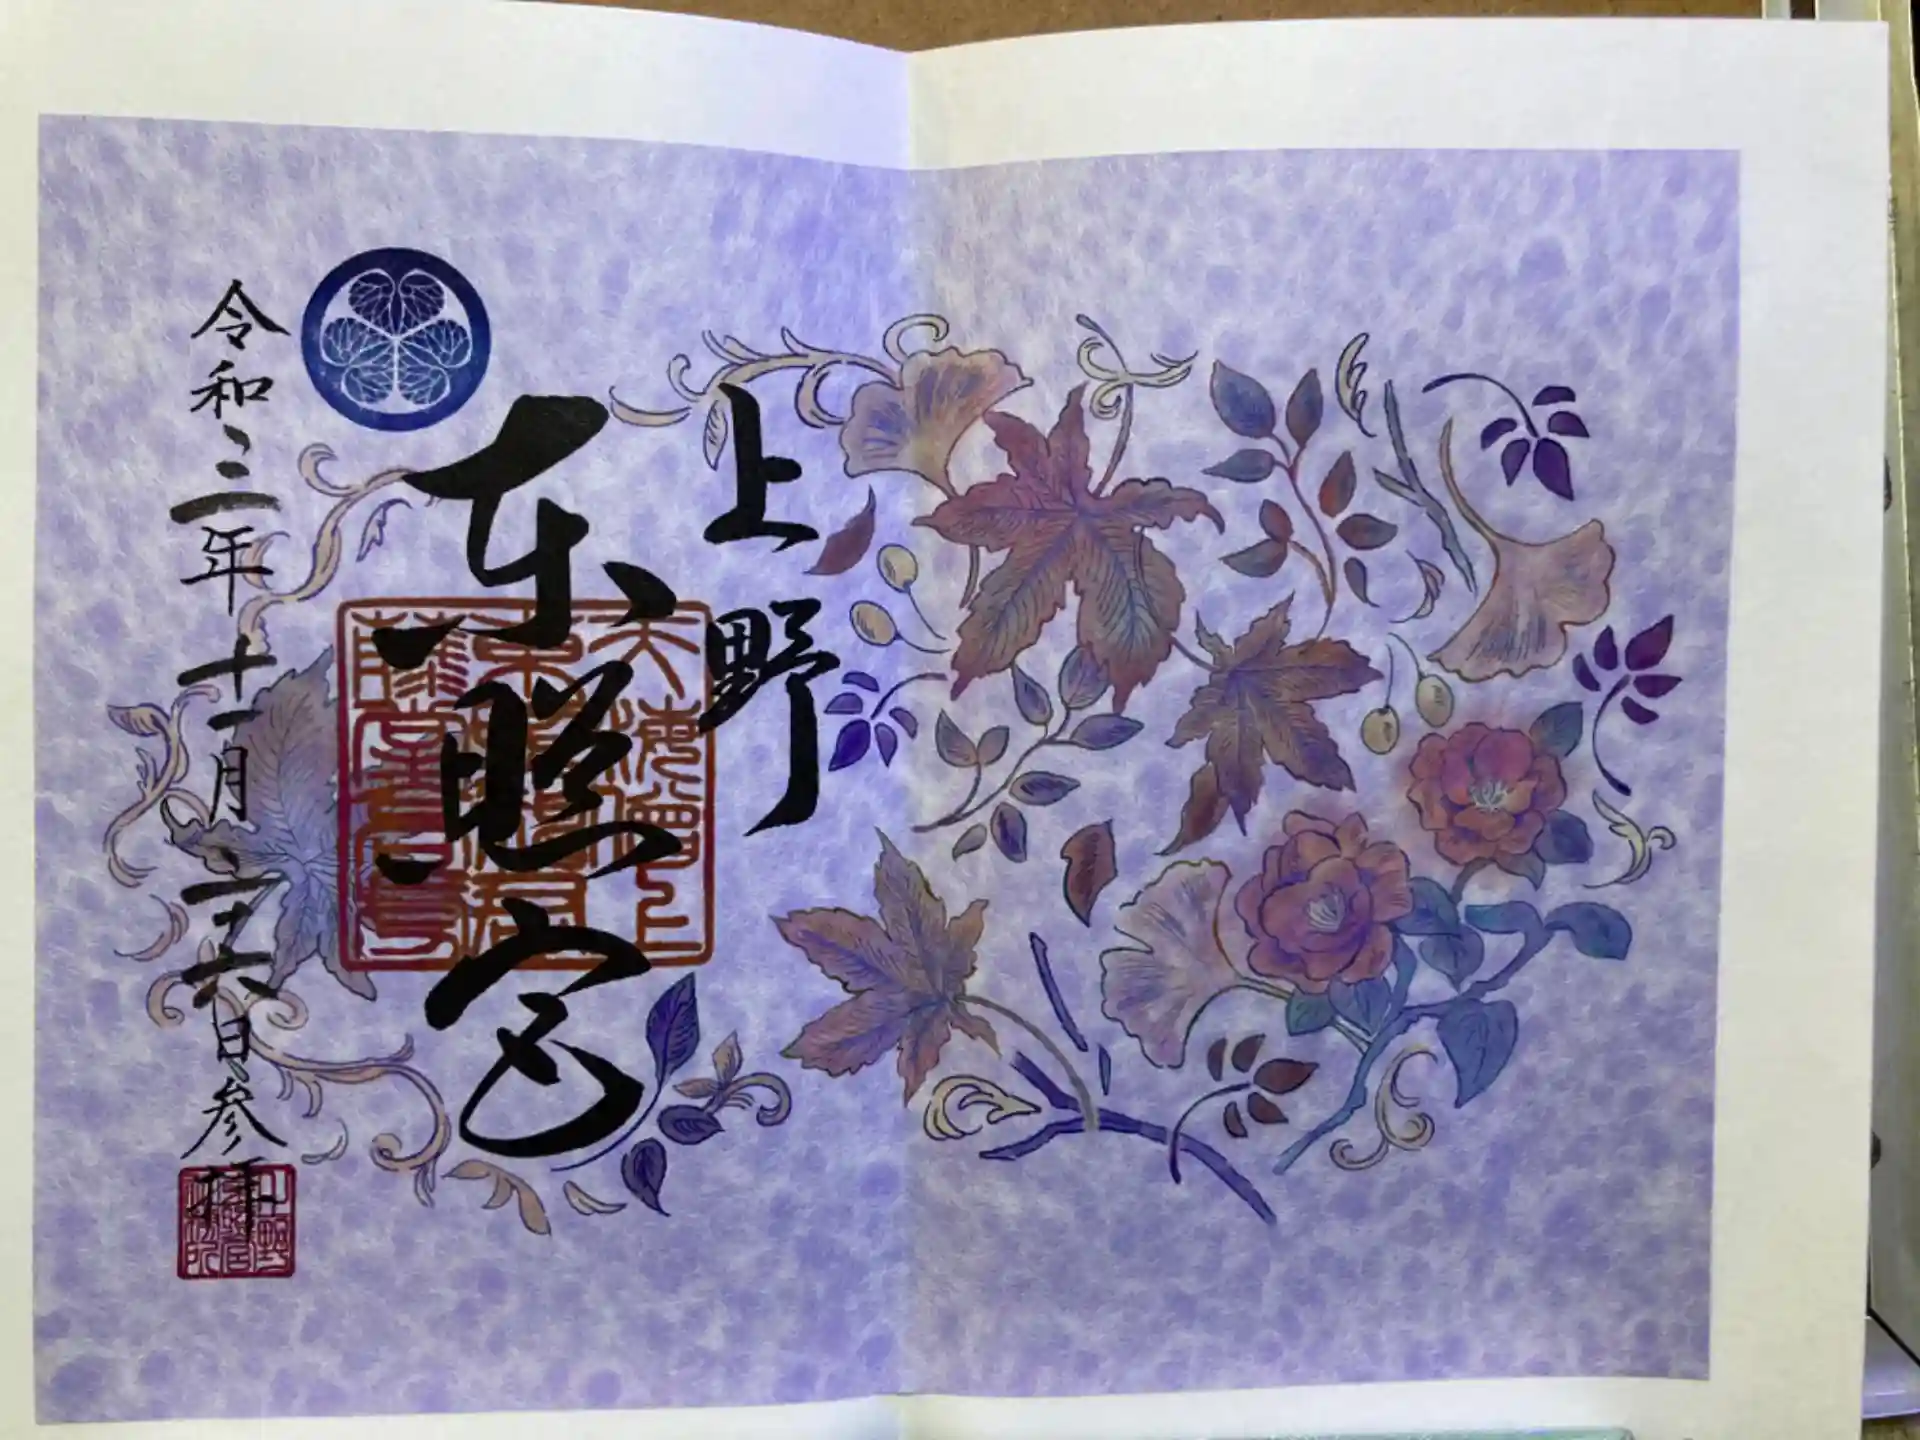 上野
東照宮
令和三年十一月二十六日参拝
上野
東照宮
社務所